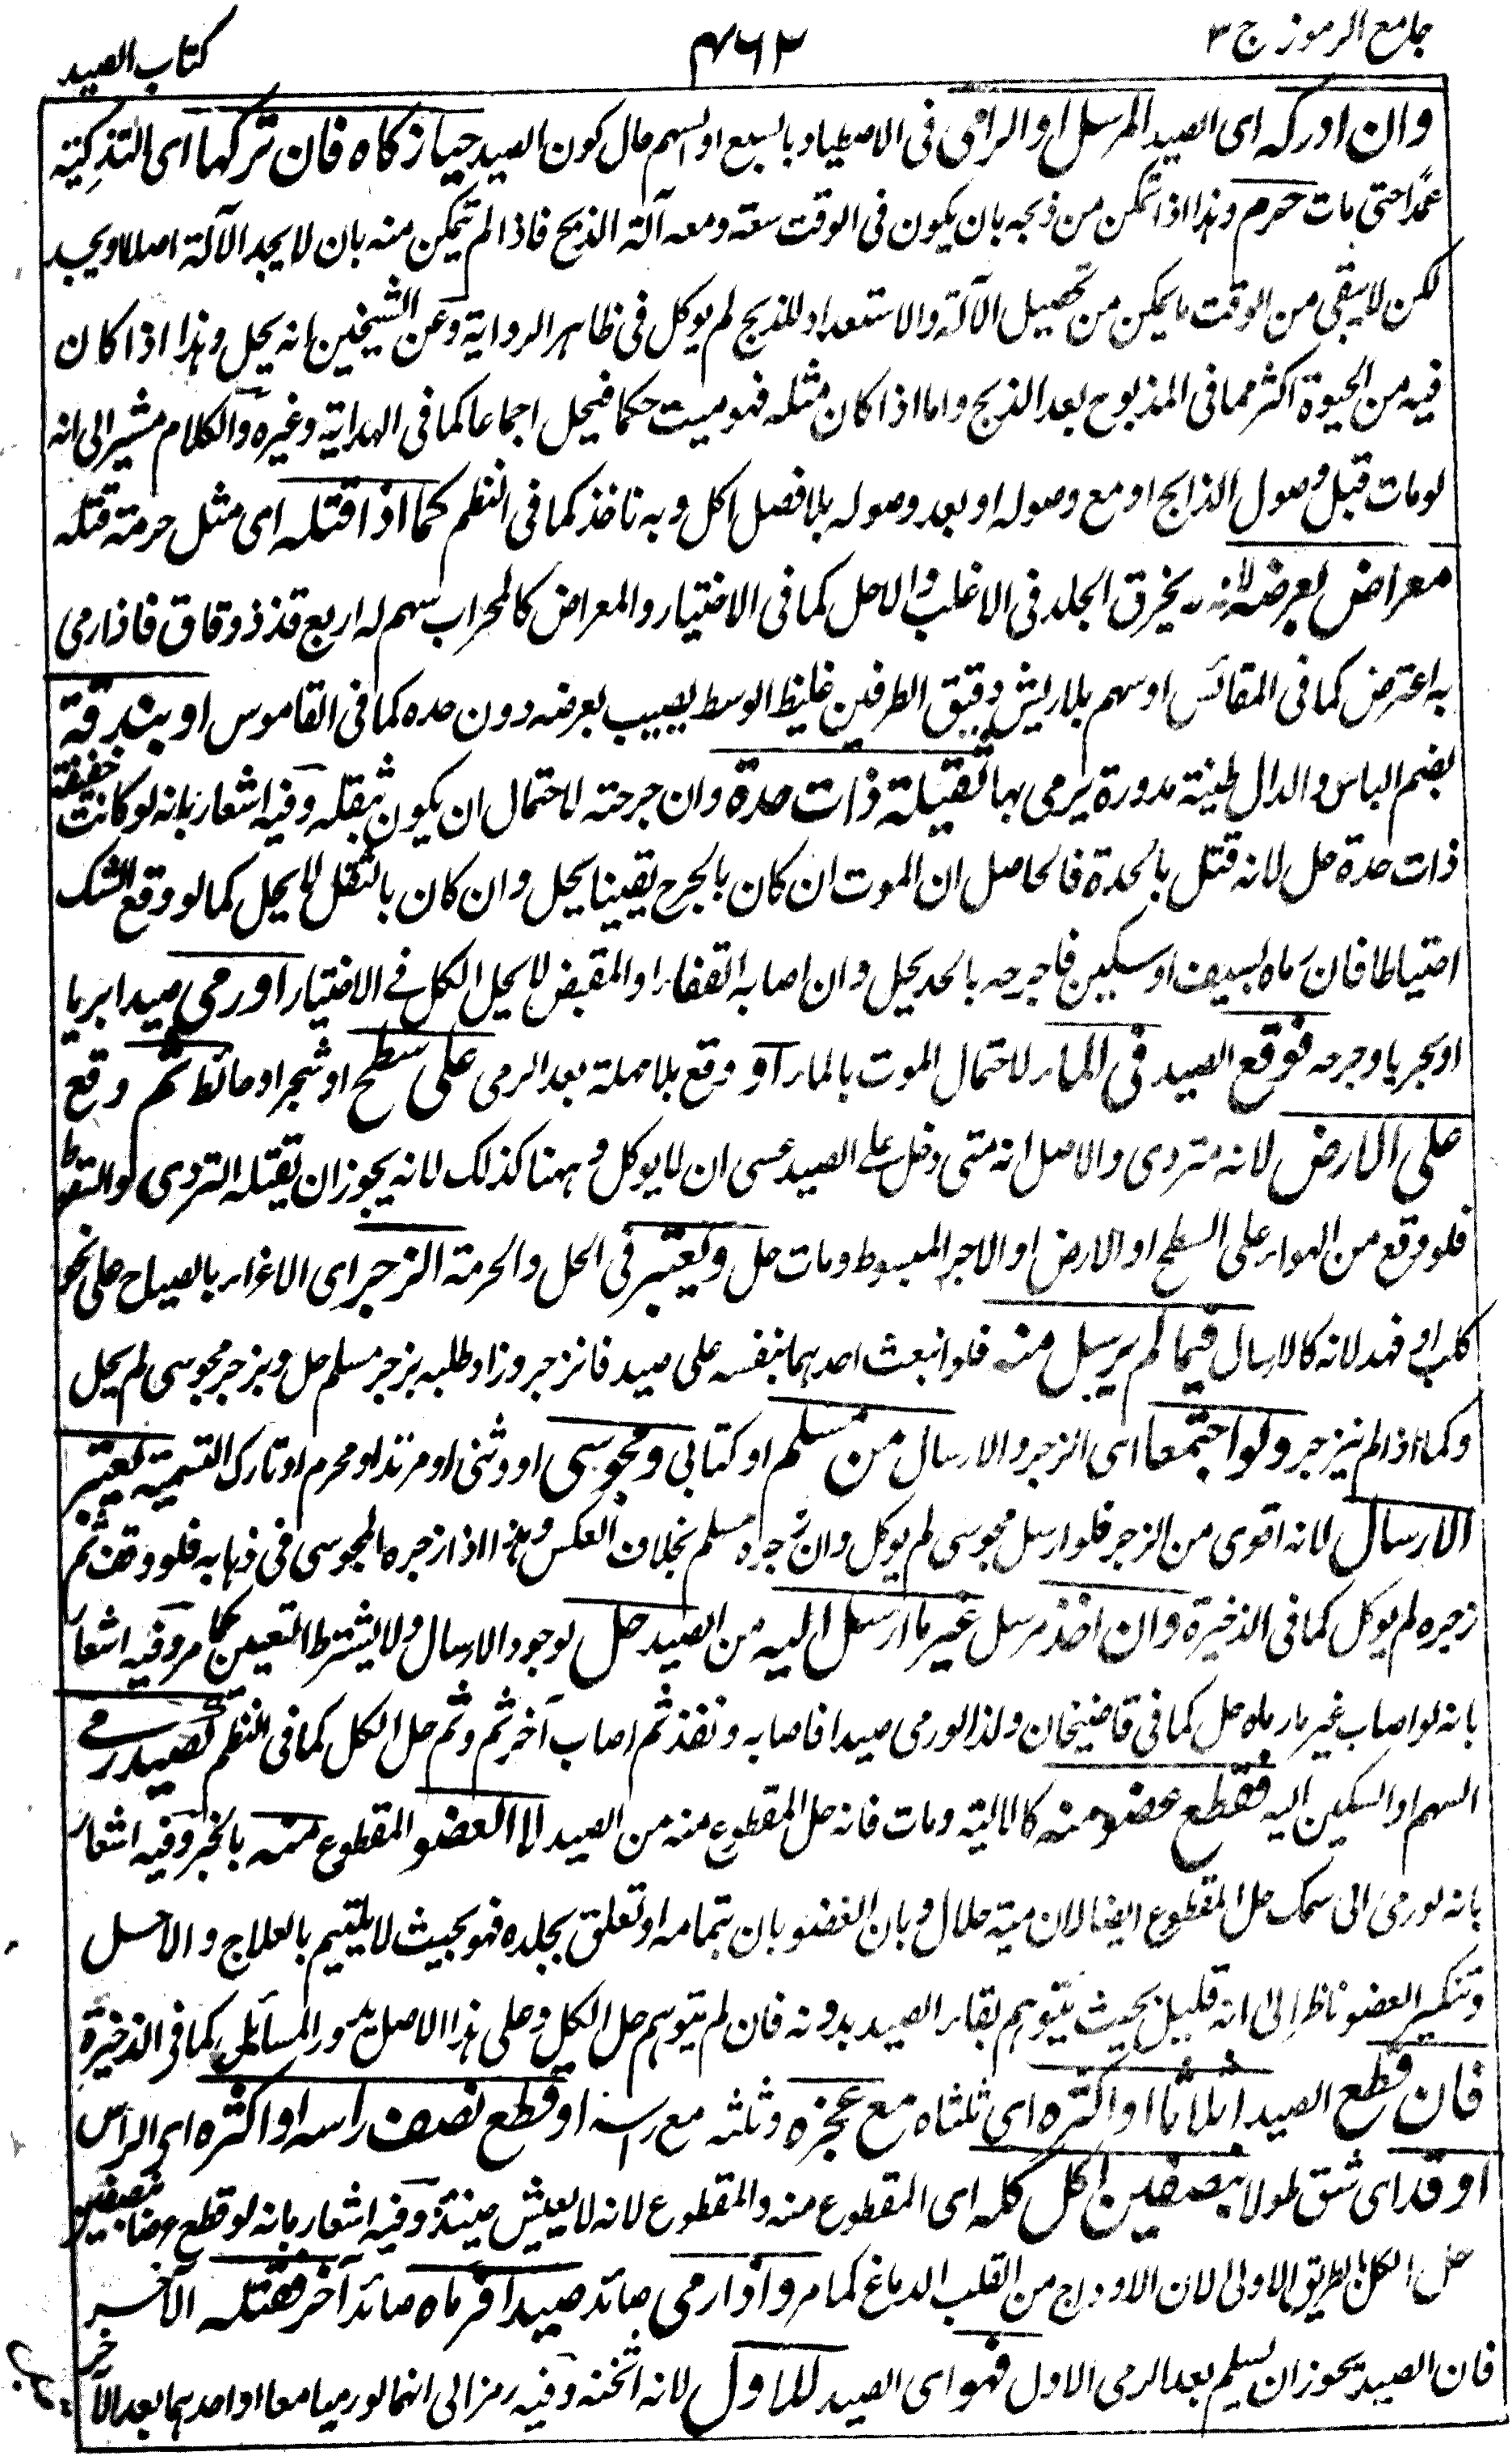 جامع الرموز ج ٣
٤٦٢
كتاب الصيد
وان ادركه اى الصيد المرسل او الرامى فى الاصطياد بالسبع او السهم حال كون الصيد حيا زكاه فان تركها اى التذكية
عمدا حتى مات حرم وهذا اذا تمكن من ذبحه بان يكون فى الوقت سعة ومعه آلة الذبح فاذا لم يتمكن منه بان لا يجد الآلة اصلا او يجد
لكن لا يبقى من الوقت ما يمكن من تحصيل الآلة والاستعداد للذبح لم يوكل فى ظاهر الرواية وعن الشيخين انه يحل وهذا اذا كان
فيه من الحيوة اكثر مما فى المذبوح بعد الذبح واما اذا كان مثله فهو ميت حكما فيحل اجماعا كما فى الهداية وغيره والكلام مشير الى انه
لو مات قبل وصول الذابح او مع وصوله او بعد وصوله بلا فصل اكل وبه ناخذ كما فى النظم كما اذا قتله اى مثل حرمة قتله
معراض بعرضه لانه لا يخرق الجلد فى الاغلب والا حل كما فى الاختيار والمعراض كالمحراب سهم له اربع قذذ دقاق فاذا رمى
به اعترض كما فى المقائس او سهم بلا ريش دقيق الطرفين غليظ الوسط يصيب بعرضه دون حده كما فى القاموس او بندقة
بضم الباء والدال طينة مدورة يرمى بها ثقيلة ذات حدة وان جرحته لاحتمال ان يكون بثقله وفيه اشعار بانه لو كانت خفيفة
ذات حدة حل لانه قتل بالحدة فالحاصل ان الموت ان كان بالجرح يقينا يحل وان كان بالثقل لا يحل كما لو وقع الشك
احتياطا فان رماه بسيف او سكين فاجرحه بالحد يحل وان اصابه القفاء او المقبض لا يحل الكل فے الاختيار او رمى صيدا بريا
او بحريا وجرحه فوقع الصيد فى الماء لاحتمال الموت بالماء او وقع بلا مهلة بعد الرمى على سطح او شجر او حائط ثم وقع
على الارض لانه متردى والاصل انه متى دخل على الصيد عسى ان لا يوكل وههنا كذلك لانه يجوز ان يقتله التردى والسقوط
فلو وقع من الهواء على السطح او الارض او الاجر المبسوط ومات حل ويعتبر فى الحل والحرمة الزجر اى الاغراء بالصياح على نحو
كلب او فهد لانه كالارسال فيما لم يرسل منه فلو انبعث احدهما بنفسه على صيد فانزجر وزاد طلبه بزجر مسلم حل وبزجر مجوسى لم يحل
وكما اذا لم ينزجر ولو اجتمعا اى الزجر والارسال من مسلم او كتابى ومجوسى او وثنى او مرتد او محرم او تارك التسمية يعتبر
الارسال لانه اقوى من الزجر فلو ارسل مجوسى لم يوكل وان زجره مسلم بخلاف العكس وهذا اذا زجره المجوسى فى ذهابه فلو وقف ثم
زجره لم يوكل كما فى الذخيرة وان اخذ مرسل غير ما ارسل اليه من الصيد حل لوجود الارسال ولا يشترط التعيين كما مر وفيه اشعار
بانه لو اصاب غير ما رماه حل كما فى قاضيخان ولذا لو رمى صيدا فاصابه ونفذ ثم اصاب آخر ثم وثم حل الكل كما فى النظم كصيد رمى
السهم او السكين اليه فقطع عضو منه كالالية ومات فانه حل المقطوع منه من الصيد لا العضو المقطوع منه بالخبر وفيه اشعار
بانه لو رمى الى سمك حل المقطوع ايضا لان ميته حلال وبان العضو بان بتمامه او تعلق بجلده فهو بحيث لا يلتيم بالعلاج والا حل
وتنكير العضو ناظر الى انه قليل بحيث يتوهم بقاء الصيد بدونه فان لم يتوهم حل الكل وعلى هذا الاصل يدور المسائل كما فى الذخيرة
فان قطع الصيد اثلاثا او اكثره اى ثلثاه مع عجزه وثلثه مع راسه او قطع نصف راسه او اكثره اى الراس
او قد اى شق طولا بنصفين اكل كله اى المقطوع منه والمقطوع لانه لا يعيش حينئذ وفيه اشعار بانه لو قطع عرضا بنصفين
حل الكل بالطريق الاولى لان الاوداج من القلب الدماغ كما مر واذا رمى صائد صيدا فرماه صائد آخر فقتله الآخر
فان الصيد يجوز ان يسلم بعد الرمى الاول فهو اى الصيد للاول لانه اثخنه وفيه رمز الى انهما لو رميا معا او احدهما بعد الآخر